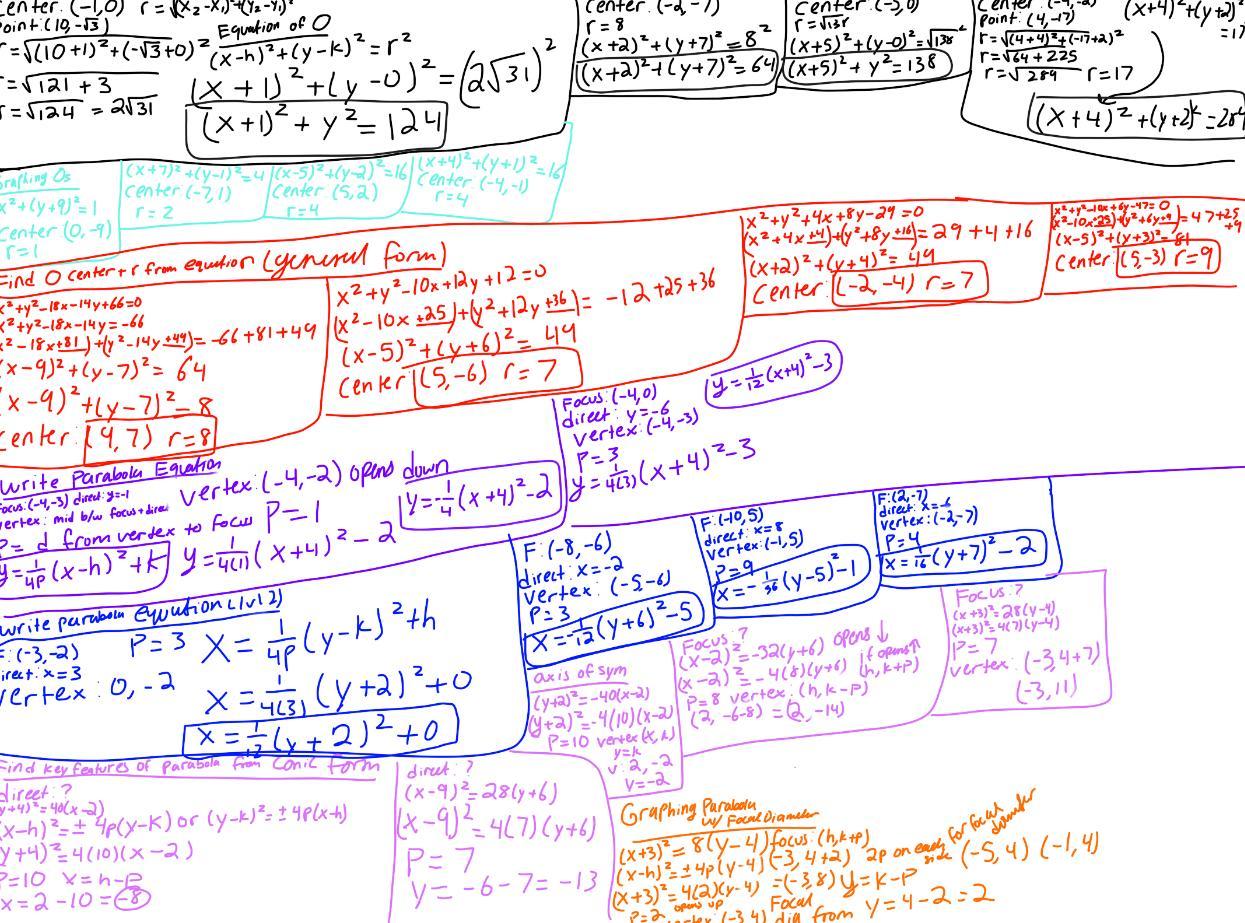 Center: (-1,0)
Point: (10,-√3)
r=√(10+1)²+(-√3+0)²
r=√121+3
r=√124 = 2√31
r=√(x₂-x₁)²+(y₂-y₁)²
Equation of O
(x-h)²+(y-k)²=r²
(x+1)²+(y-0)²=(2√31)²
(x+1)²+y²=124
Center: (-2,-7)
r=8
(x+2)²+(y+7)²=8²
(x+2)²+(y+7)²=64
Center: (-5,0)
r=√138
(x+5)²+(y-0)²=√138²
(x+5)²+y²=138
Center: (-4,-2)
Point: (4,-17)
r=√(4+4)²+(-17+2)²
r=√64+225
r=√289 r=17
(x+4)²+(y+2)²
=17
(x+4)²+(y+2)²=289
Graphing Os
x²+(y+9)²=1
Center (0,-9)
r=1
(x+7)²+(y-1)²=4
Center (-7,1)
r=2
(x-5)²+(y-2)²=16
Center (5,2)
r=4
(x+4)²+(y+1)²=16
Center (-4,-1)
r=4
Find O center+r from equation (general form)
x²+y²-18x-14y+66=0
x²+y²-18x-14y=-66
x²-18x+81)+(y²-14y+49)=-66+81+49
(x-9)²+(y-7)²=64
(x-9)²+(y-7)²=8
Center: (9,7) r=8
x²+y²-10x+12y+12=0
(x²-10x+25)+(y²+12y+36)=-12+25+36
(x-5)²+(y+6)²=49
Center (5,-6) r=7
x²+y²+4x+8y-29=0
(x²+4x+4)+(y²+8y+16)=29+4+16
(x+2)²+(y+4)²=49
Center: (-2,-4) r=7
x²+y²-10x+6y-47=0
(x²-10x+25)+(y²+6y+9)=47+25
+9
(x-5)²+(y+3)²=81
Center: (5,-3) r=9
Write Parabola Equation
Focus:(-4,-3) direct: y=-1
vertex: mid b/w focus+direct
P= d from vertex to focus
y=1/4P(x-h)²+k
vertex: (-4,-2) opens down
P=1
y=1/4(1)(x+4)²-2
y=-1/4(x+4)²-2
Focus:(-4,0)
direct: y=-6
vertex: (-4,-3)
P=3
y=1/4(3)(x+4)²-3
y=1/12(x+4)²-3
Write parabola equation (lvl 2)
F:(-3,-2)
direct: x=3
vertex: 0,-2
P=3
x=1/4P(y-k)²+h
x=1/4(3)(y+2)²+0
x=1/12(y+2)²+0
F:(-8,-6)
direct: x=-2
vertex: (-5,-6)
P=3
x=-1/12(y+6)²-5
F:(-10,5)
direct: x=8
vertex: (-1,5)
P=9
x=-1/36(y-5)²-1
F:(2,-7)
direct: x=-6
vertex: (-2,-7)
P=4
x=1/16(y+7)²-2
Find key features of parabola from Conic form
direct: ?
(y+4)²=40(x-2)
(x-h)²=± 4p(y-k) or (y-k)²=± 4p(x-h)
(y+4)²=4(10)(x-2)
P=10 x=h-p
x=2-10=-8
direct: ?
(x-9)²=28(y+6)
(x-9)²=4(7)(y+6)
P=7
y=-6-7=-13
axis of sym
(y+2)²=-40(x-2)
(y+2)²=-4(10)(x-2)
P=10 vertex(h,k)
y=k
v: 2,-2
v=-2
Focus: ?
(x-2)²=-32(y+6) opens↓
(x-2)²=-4(8)(y+6) if opens↑
P=8 vertex: (h,k-p) (h,k+p)
(2,-6-8)=(2,-14)
Focus: ?
(x+3)²=28(y-4)
(x+3)²=4(7)(y-4)
P=7
vertex: (-3,4+7)
(-3,11)
Graphing Parabola
w/ Focal Diameter
(x+3)²=8(y-4) focus: (h,k+p)
(x-h)²=±4p(y-4) (-3,4+2)
(x+3)²=4(2)(y-4) =(-3,8) y=k-p
2p on each side for focal diameter (-5,4) (-1,4)
P=2 opens up
vertex (-3,4) Focal dia from y=4-2=2